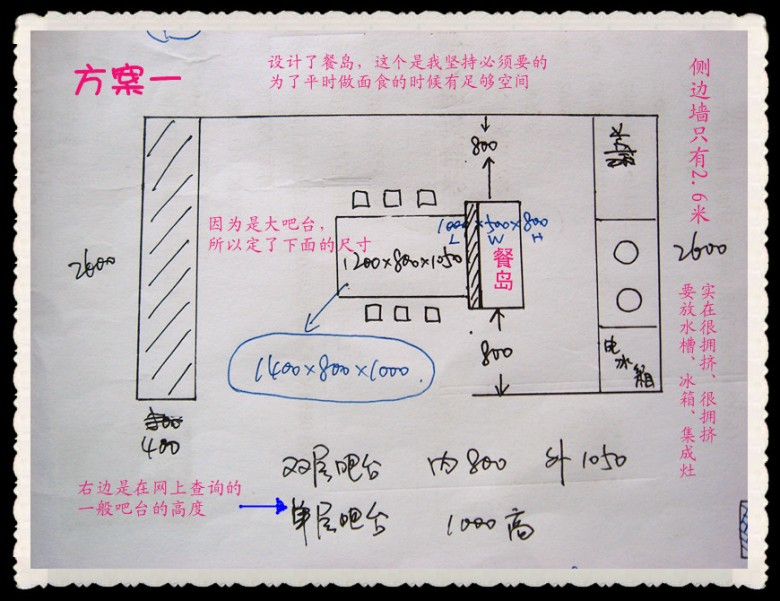 方案一
设计了餐岛，这个是我坚持必须要的
为了平时做面食的时候有足够空间
侧边墙只有2.6米
800
因为是大吧台，
所以定了下面的尺寸
1000×500×800
L W H
1200×800×1050
餐岛
2600
2600
实在很拥挤、很拥挤
要放水槽、冰箱、集成灶
800
1400×800×1000
冰箱
400
双层吧台 内800 外1050
右边是在网上查询的
一般吧台的高度
单层吧台 1000高